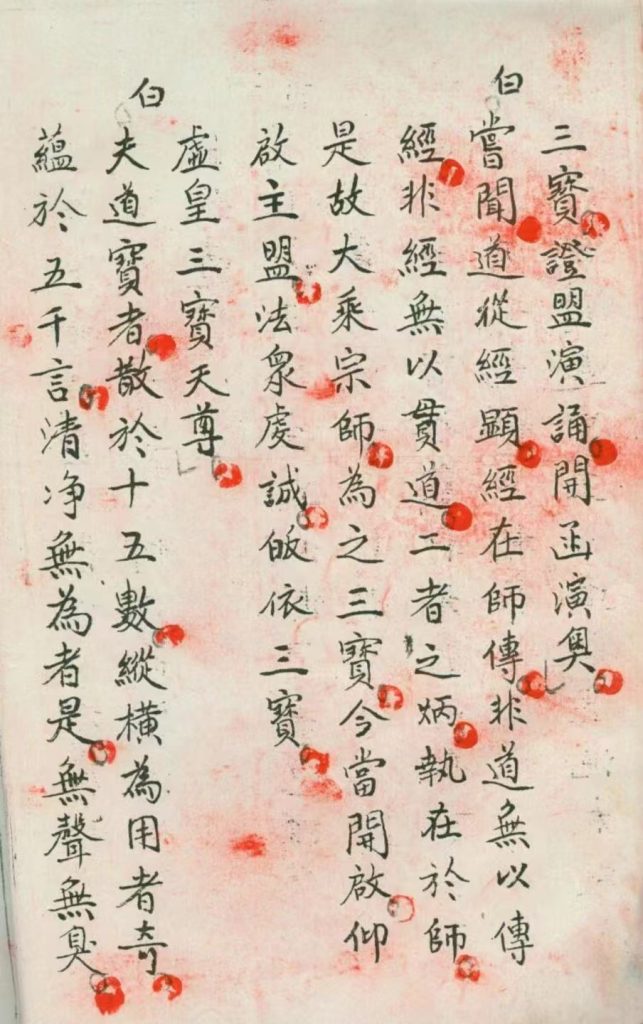 三寳證盟演誦開函演奥
白
嘗聞道從經顯經在師傳非道無以傳
經非經無以貫道二者之炳執在於師
是故大乘宗師為之三寳今當開啟仰
啟主盟法衆虔誠皈依三寳
虛皇三寳天尊
白
夫道寳者散於十五數縱横為用者竒
蘊於五千言清净無為者是無聲無臭